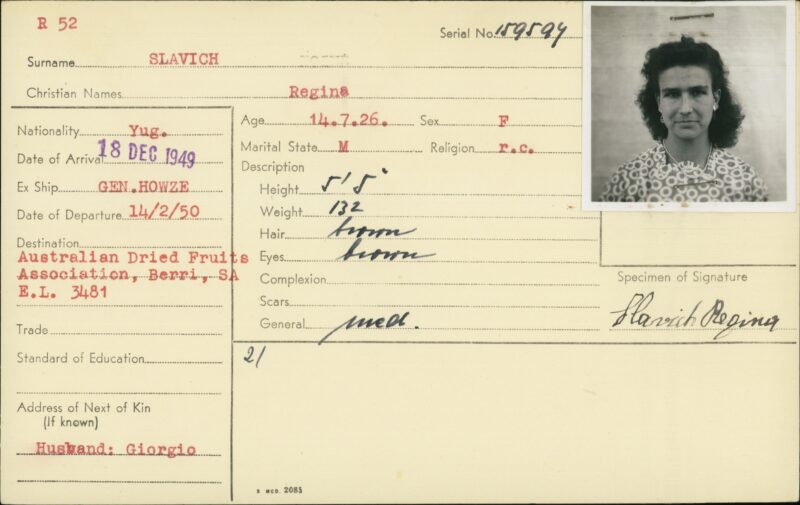 R 52
Serial No. 159594
Surname SLAVICH
Christian Names Regina
Nationality Yug.
Date of Arrival 18 DEC 1949
Ex Ship GEN.HOWZE
Date of Departure 14/2/50
Destination
Australian Dried Fruits
Association, Berri, SA
E.L. 3481
Trade
Standard of Education
Address of Next of Kin
(If known)
Husband: Giorgio
Age 14.7.26. Sex F
Marital State M Religion r.c.
Description
Height 5' 5"
Weight 132
Hair brown
Eyes brown
Complexion
Scars
General med.
Specimen of Signature
Slavich Regina
21
2085